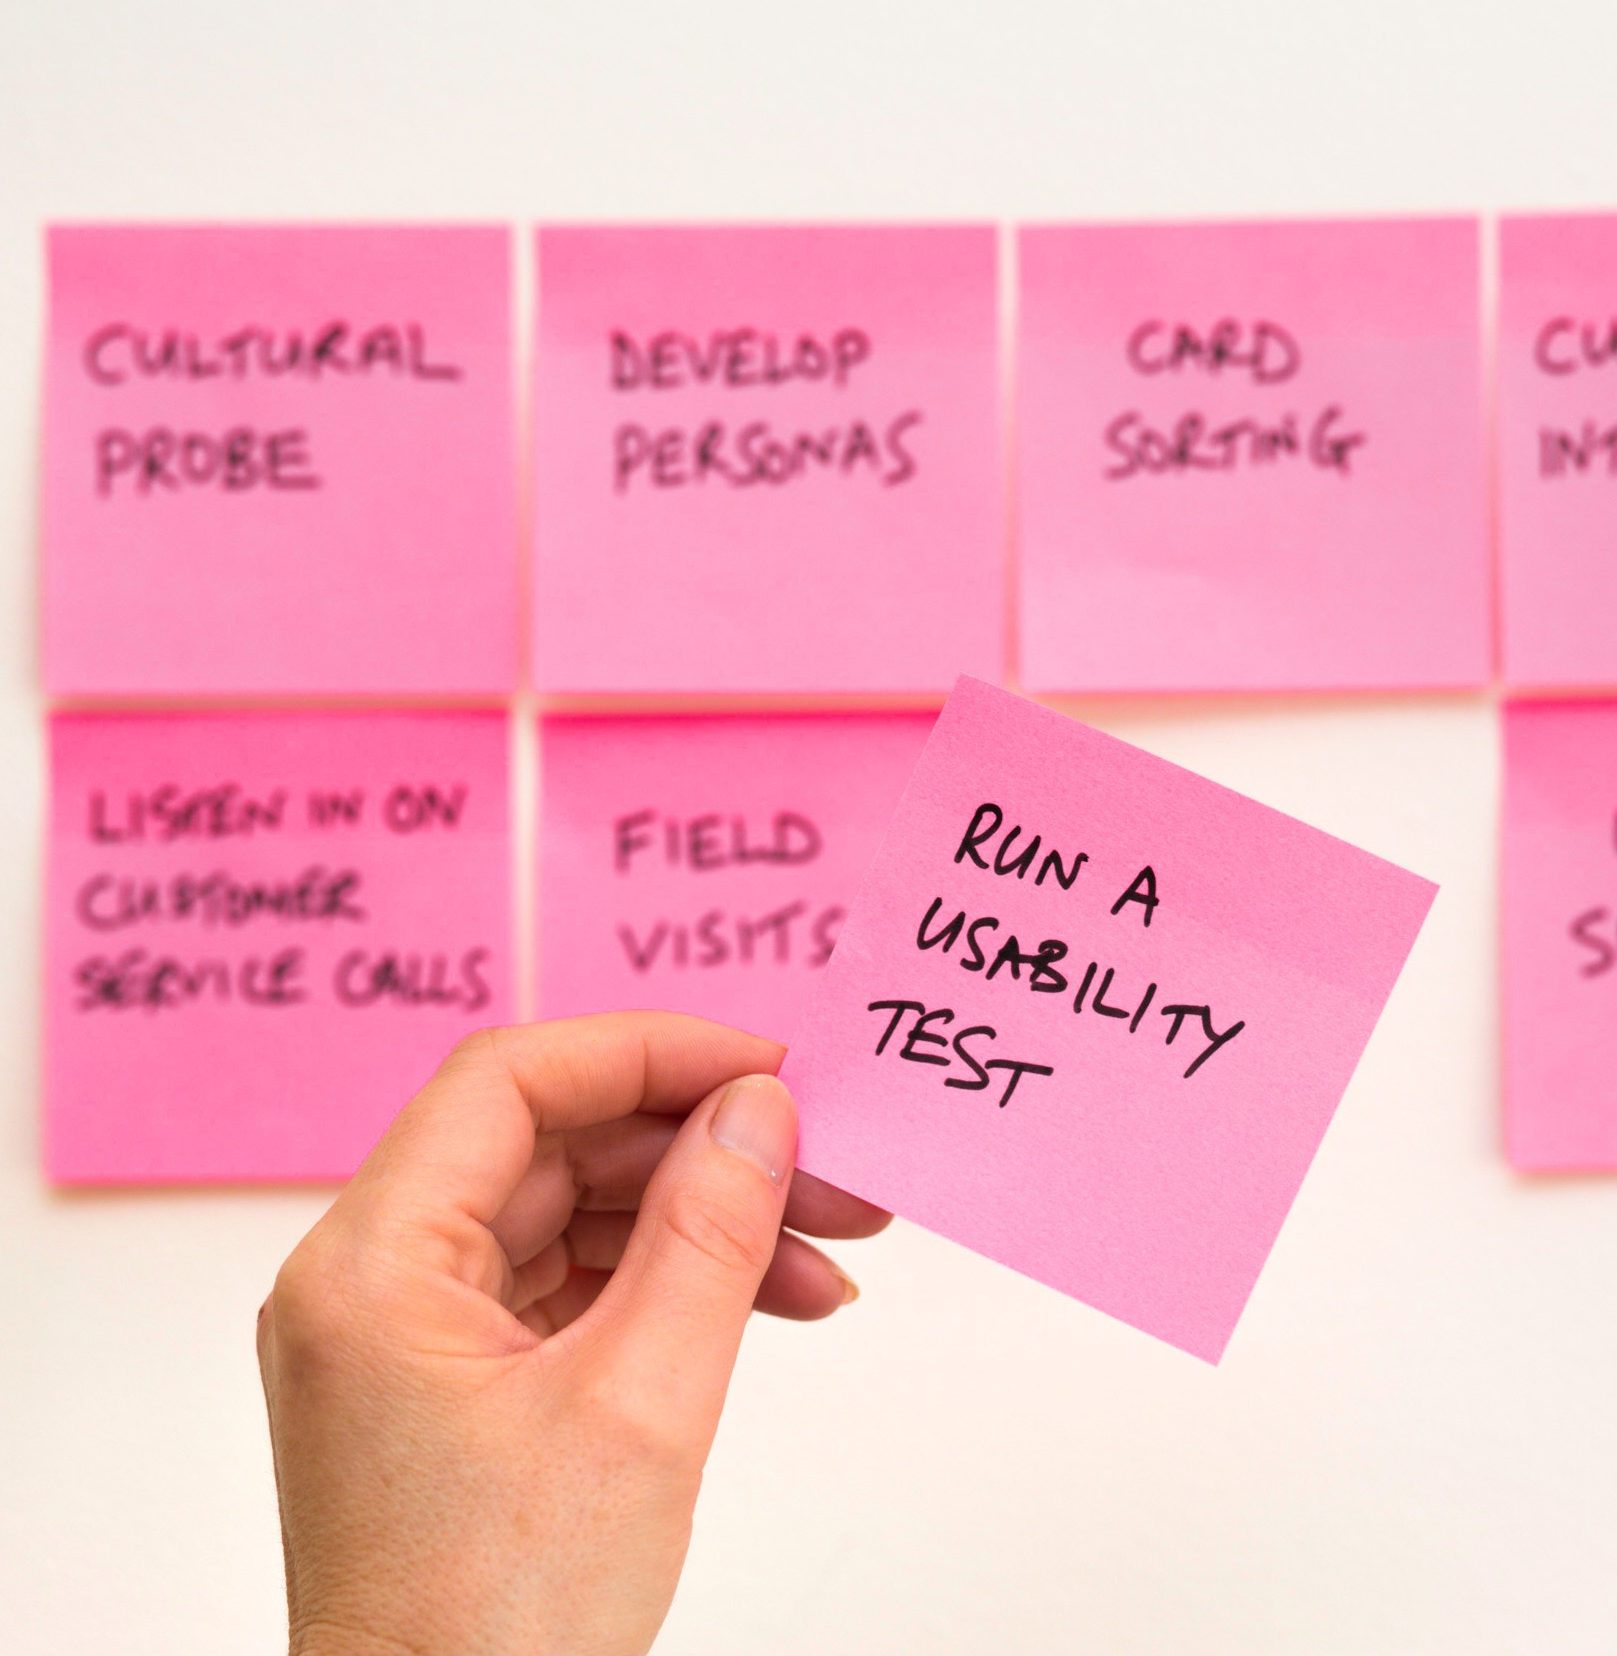 CULTURAL
PROBE
DEVELOP
PERSONAS
CARD
SORTING
LISTEN IN ON
CUSTOMER
SERVICE CALLS
FIELD
VISITS
RUN A
USABILITY
TEST